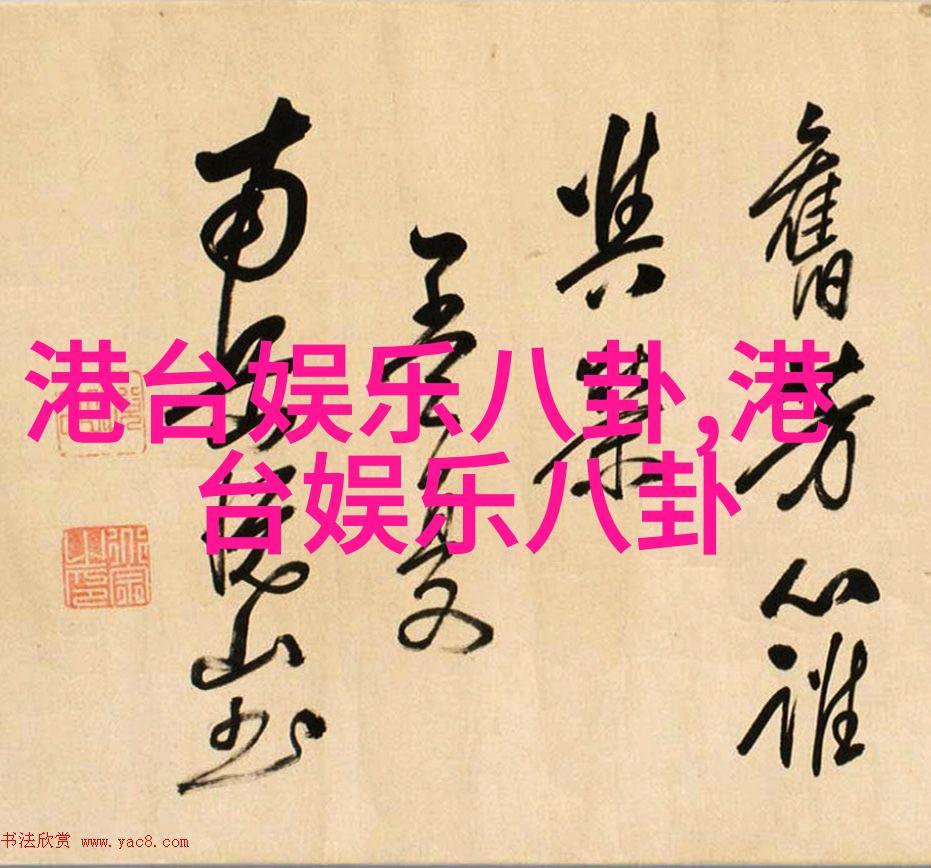 港台娱乐八卦,港
台娱乐八卦
舊芳心誰
南海山书
书法欣赏 www.yac8.com